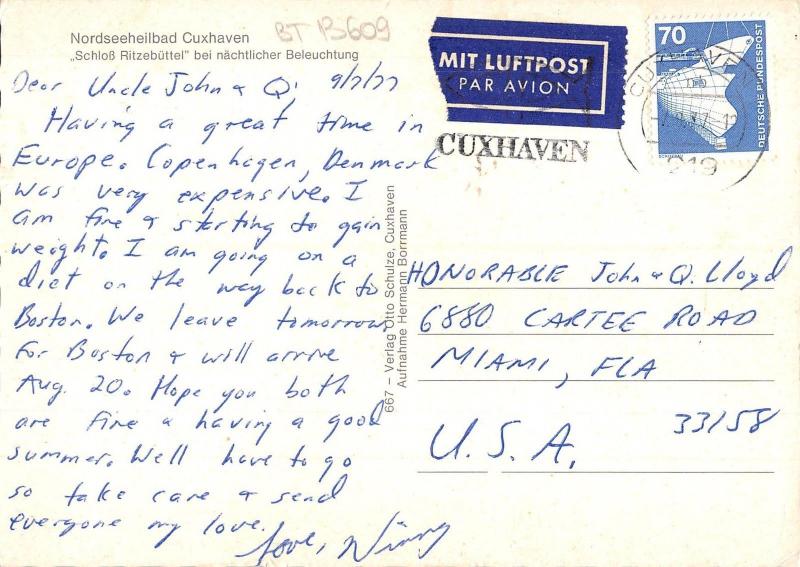 Nordseeheilbad Cuxhaven
„Schloß Ritzebüttel" bei nächtlicher Beleuchtung
BT B609
MIT LUFTPOST
PAR AVION
70
DEUTSCHE BUNDESPOST
CUXHAVEN
219
Dear Uncle John & Q.
Having a great time in
Europe. Copenhagen, Denmark
was very expensive. I
am fine & starting to gain
weight. I am going on a
diet on the way back to
Boston. We leave tomorrow
for Boston & will arrive
Aug. 20. Hope you both
are fine & having a good
summer. Well have to go
so take care & send
everyone my love.
Love,
667 – Verlag Otto Schulze, Cuxhaven
Aufnahme Hermann Borrmann
HONORABLE John & Q. Lloyd
6880 CARTEE ROAD
MIAMI, FLA
33158
U.S.A.